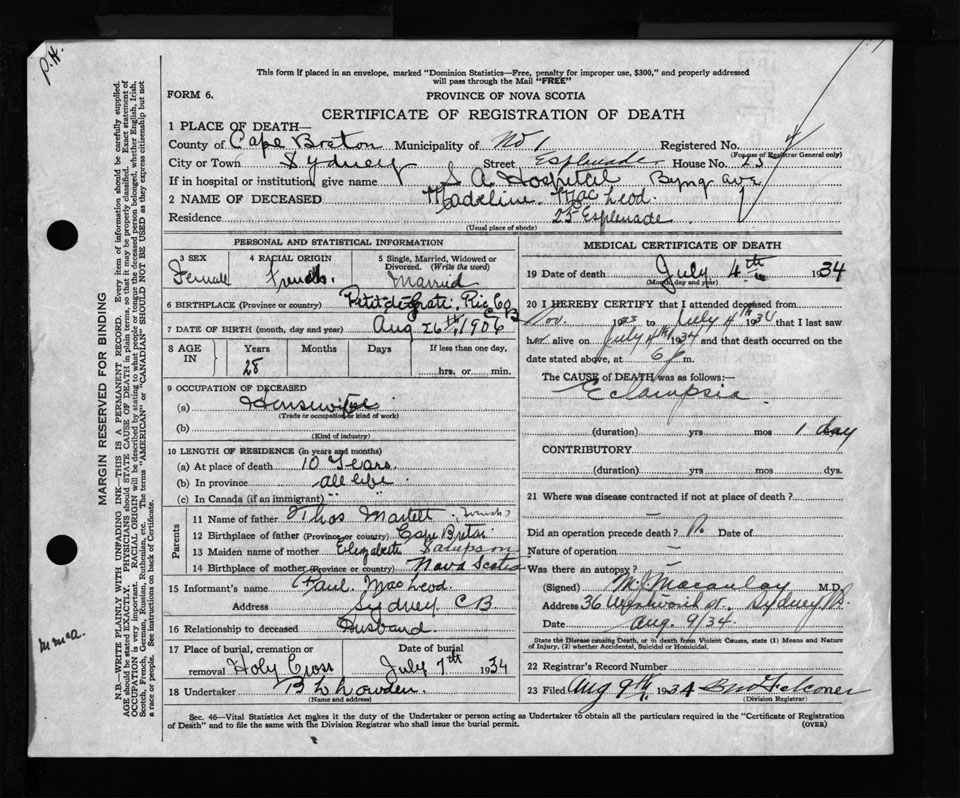 P.H.
This form if placed in an envelope, marked "Dominion Statistics—Free, penalty for improper use, $300," and properly addressed
will pass through the Mail "FREE"
FORM 6.
PROVINCE OF NOVA SCOTIA
CERTIFICATE OF REGISTRATION OF DEATH
1 PLACE OF DEATH—
County of Cape Breton Municipality of No 1 Registered No.
(For use of Registrar General only)
City or Town Sydney Street Esplenade House No. 25
If in hospital or institution, give name S A Hospital Byng ave
2 NAME OF DECEASED Madeline Mac Leod.
Residence 25 Esplenade
(Usual place of abode)
PERSONAL AND STATISTICAL INFORMATION
3 SEX 4 RACIAL ORIGIN 5 Single, Married, Widowed or
Divorced. (Write the word)
Female French. Married
6 BIRTHPLACE (Province or country) Petit de Grat. Ric Co CB
7 DATE OF BIRTH (month, day and year) Aug 26th, 1906
8 AGE IN Years Months Days If less than one day,
28 hrs. or min.
9 OCCUPATION OF DECEASED
(a) Housewife
(Trade or occupation or kind of work)
(b)
(Kind of industry)
10 LENGTH OF RESIDENCE (in years and months)
(a) At place of death 10 Years.
(b) In province all life
(c) In Canada (if an immigrant) " "
Parents
11 Name of father Thos Martell (French)
12 Birthplace of father (Province or country) Cape Breton
13 Maiden name of mother Elizabeth Sampson
14 Birthplace of mother (Province or country) Nova Scotia
15 Informant's name Paul Mac Leod.
Address Sydney C B
16 Relationship to deceased Husband.
17 Place of burial, cremation or removal Holy Cross Date of burial July 7th 1934
18 Undertaker
(Name and address)
MEDICAL CERTIFICATE OF DEATH
19 Date of death July 4th 1934
(Month, day and year)
20 I HEREBY CERTIFY that I attended deceased from
Nov. 1933 to July 4th 1934 that I last saw
her alive on July 4th 1934 and that death occurred on the
date stated above, at 6 p m.
The CAUSE of DEATH was as follows:—
Eclampsia
(duration) yrs mos 1 day
CONTRIBUTORY
(duration) yrs mos dys.
21 Where was disease contracted if not at place of death?
Did an operation precede death? No. Date of
Nature of operation
Was there an autopsy?
(Signed) M. J. Macaulay M.D.
Address 36 Wentworth St., Sydney N.S.
Date Aug. 9/34.
State the Disease causing Death, or in death from Violent Causes, state (1) Means and Nature
of Injury, (2) whether Accidental, Suicidal or Homicidal.
22 Registrar's Record Number
23 Filed Aug 9th 1934 Falconer
(Division Registrar)
Sec. 46—Vital Statistics Act makes it the duty of the Undertaker or person acting as Undertaker to obtain all the particulars required in the "Certificate of Registration
of Death" and to file the same with the Division Registrar who shall issue the burial permit.
(OVER)
MARGIN RESERVED FOR BINDING
N.B.—WRITE PLAINLY WITH UNFADING INK—THIS IS A PERMANENT RECORD. Every item of information should be carefully supplied.
AGE should be stated EXACTLY. PHYSICIANS should STATE CAUSE OF DEATH in plain terms, so that it may be properly classified. Exact statement of
OCCUPATION is very important. RACIAL ORIGIN will be described by stating to what people or tongue the deceased person belonged, whether English, Irish,
Scotch, French, German, Russian, Ruthenian, etc. The terms "AMERICAN" or "CANADIAN" SHOULD NOT BE USED as they express citizenship but not
a race or people. See instructions on back of Certificate.